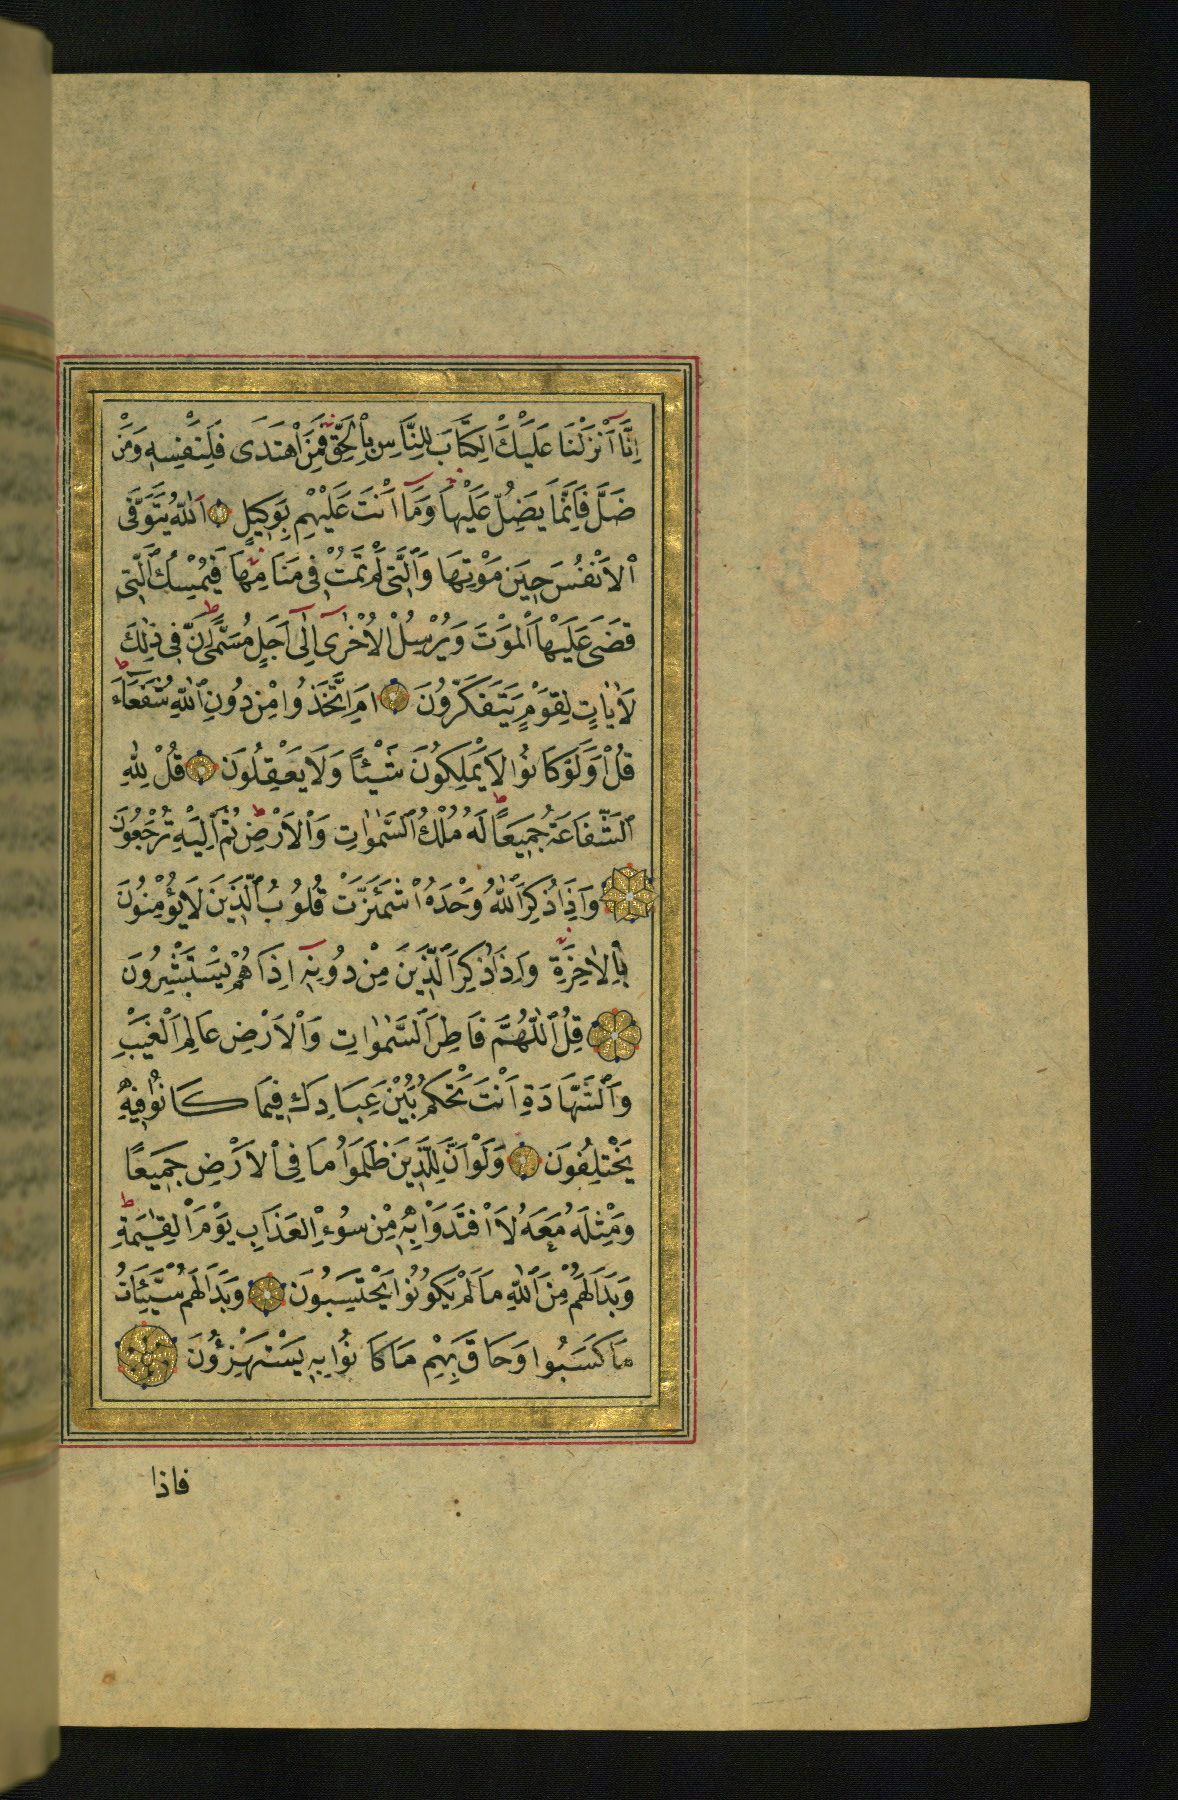 اِنَّٓا اَنْزَلْنَا عَلَيْكَ الْكِتَابَ لِلنَّاسِ بِالْحَقِّ فَمَنِ اهْتَدٰى فَلِنَفْسِهٖ وَمَنْ
ضَلَّ فَاِنَّمَا يَضِلُّ عَلَيْهَا وَمَٓا اَنْتَ عَلَيْهِمْ بِوَكٖيلٍ اَللّٰهُ يَتَوَفَّى
الْاَنْفُسَ حٖينَ مَوْتِهَا وَالَّتٖى لَمْ تَمُتْ فٖى مَنَامِهَا فَيُمْسِكُ الَّتٖى
قَضٰى عَلَيْهَا الْمَوْتَ وَيُرْسِلُ الْاُخْرٰٓى اِلٰٓى اَجَلٍ مُسَمًّى اِنَّ فٖى ذٰلِكَ
لَاٰيَاتٍ لِقَوْمٍ يَتَفَكَّرُونَ اَمِ اتَّخَذُوا مِنْ دُونِ اللّٰهِ شُفَعَٓاءَ
قُلْ اَوَلَوْ كَانُوا لَا يَمْلِكُونَ شَيْئًا وَلَا يَعْقِلُونَ قُلْ لِلّٰهِ
الشَّفَاعَةُ جَمٖيعًا لَهُ مُلْكُ السَّمٰوَاتِ وَالْاَرْضِ ثُمَّ اِلَيْهِ تُرْجَعُونَ
وَاِذَا ذُكِرَ اللّٰهُ وَحْدَهُ اشْمَئَزَّتْ قُلُوبُ الَّذٖينَ لَا يُؤْمِنُونَ
بِالْاٰخِرَةِ وَاِذَا ذُكِرَ الَّذٖينَ مِنْ دُونِهٖٓ اِذَا هُمْ يَسْتَبْشِرُونَ
قُلِ اللّٰهُمَّ فَاطِرَ السَّمٰوَاتِ وَالْاَرْضِ عَالِمَ الْغَيْبِ
وَالشَّهَادَةِ اَنْتَ تَحْكُمُ بَيْنَ عِبَادِكَ فٖيمَا كَانُوا فٖيهِ
يَخْتَلِفُونَ وَلَوْ اَنَّ لِلَّذٖينَ ظَلَمُوا مَا فِى الْاَرْضِ جَمٖيعًا
وَمِثْلَهُ مَعَهُ لَافْتَدَوْا بِهٖ مِنْ سُوءِ الْعَذَابِ يَوْمَ الْقِيٰمَةِ
وَبَدَا لَهُمْ مِنَ اللّٰهِ مَا لَمْ يَكُونُوا يَحْتَسِبُونَ وَبَدَا لَهُمْ سَيِّئَاتُ
مَا كَسَبُوا وَحَاقَ بِهِمْ مَا كَانُوا بِهٖ يَسْتَهْزِؤُنَ
فاذا